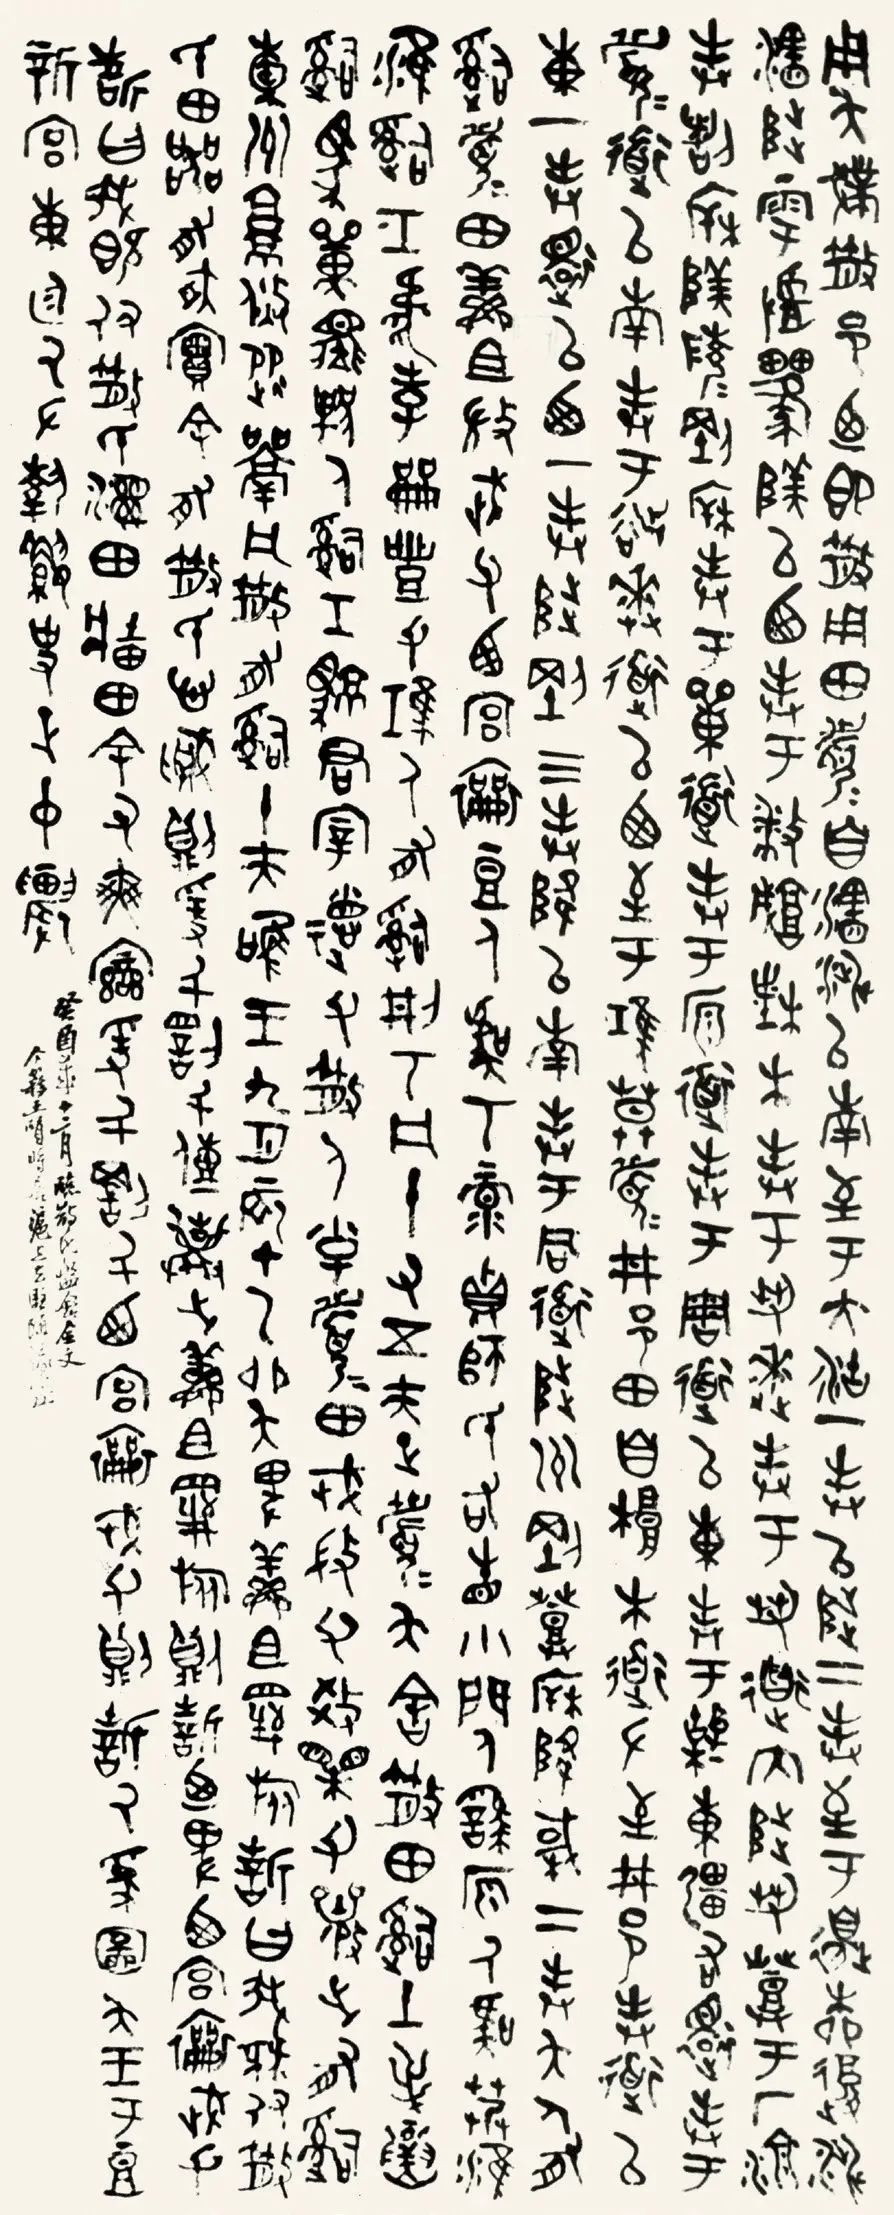 用夨撲散邑乃即散用田眉自瀗涉以南至于大沽一封以陟二封至于邊柳復涉
瀗陟雩陕以西封于播城楮木封于芻逨封于芻道內陟芻登于厂湶
封剖柝陕陵剛柝封于單道封于原道封于周道以東封于棹東疆右還封于
眉道以南封于逨道以西至于鴻莫眉井邑田自桹木道左至于井邑封道以
東一封還以西一封陟剛三封降以南封于同道陟州剛登柝降棫二封夨人有
司眉田鮮且微武父西宮襄豆人虞丂彔貞師氏右眚小門人繇原人虞艿
淮司工虎孝龠豐父鴻人有司刑丂凡十又五夫正眉夨舍散田司土逆
司馬單人司工君宰德父散人小子眉田戎微父效父襄之有司
橐州就焂從凡散有司十夫唯王九月辰在乙卯夨俾鮮且旅誓曰我既付散
氏田器有爽實余有散氏心賊則爰千罰千傳棄之鮮且旅則誓乃俾西宮襄武父
誓曰我既付散氏濕田畛田余又爽變爰千罰千西宮襄武父則誓厥受圖夨王于豆
新宮東廷厥左執史正中農
癸酉十二月臨散氏盤銘全文